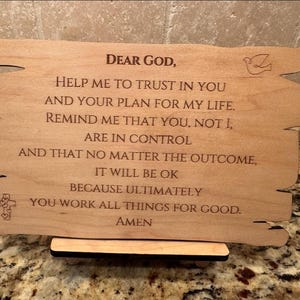 Dear God,
Help me to trust in you
and your plan for my life.
Remind me that you, not I,
are in control
and that no matter the outcome,
it will be ok
because ultimately
you work all things for good.
Amen